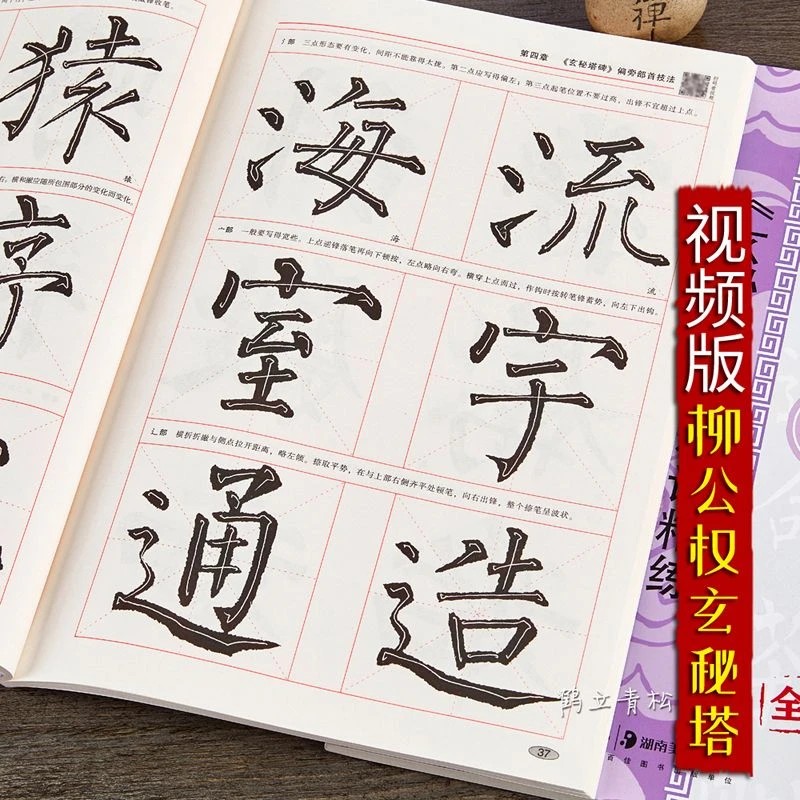 猿
猿
右。横和撇应随所包围部分的变化而变化。
第四章 《玄秘塔碑》偏旁部首技法
氵部 三点形态要有变化，间距不能靠得太拢。第二点应写得偏左；第三点起笔位置不要过高，出锋不宜超过上点。
海 流
海 流
宀部 一般要写得宽些。上点逆锋落笔再向下顿按，左点略向右弯。横穿上点而过，作钩时按转笔锋蓄势，向左下出钩。
室 字
辶部 横折折撇与侧点拉开距离，略左倾。捺取平势，在与上部右侧齐平处顿笔，向右出锋，整个捺笔呈波状。
通 造
37
禅
视频版柳公权玄秘塔
精练
全
湖南美
鹤立青松